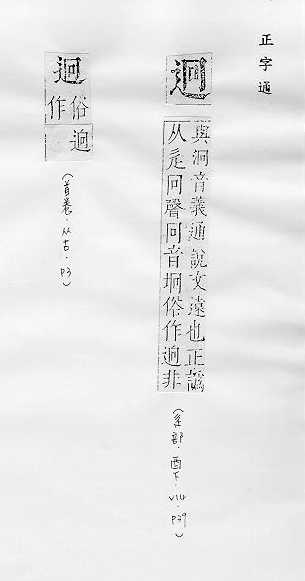 正字通
迥
與泂音義通說文遠也正譌
从辵冋聲冋音坰俗作逈非
(辵部．酉下．V14．P29)
迥
俗作
逈
(首卷．从古．P3)